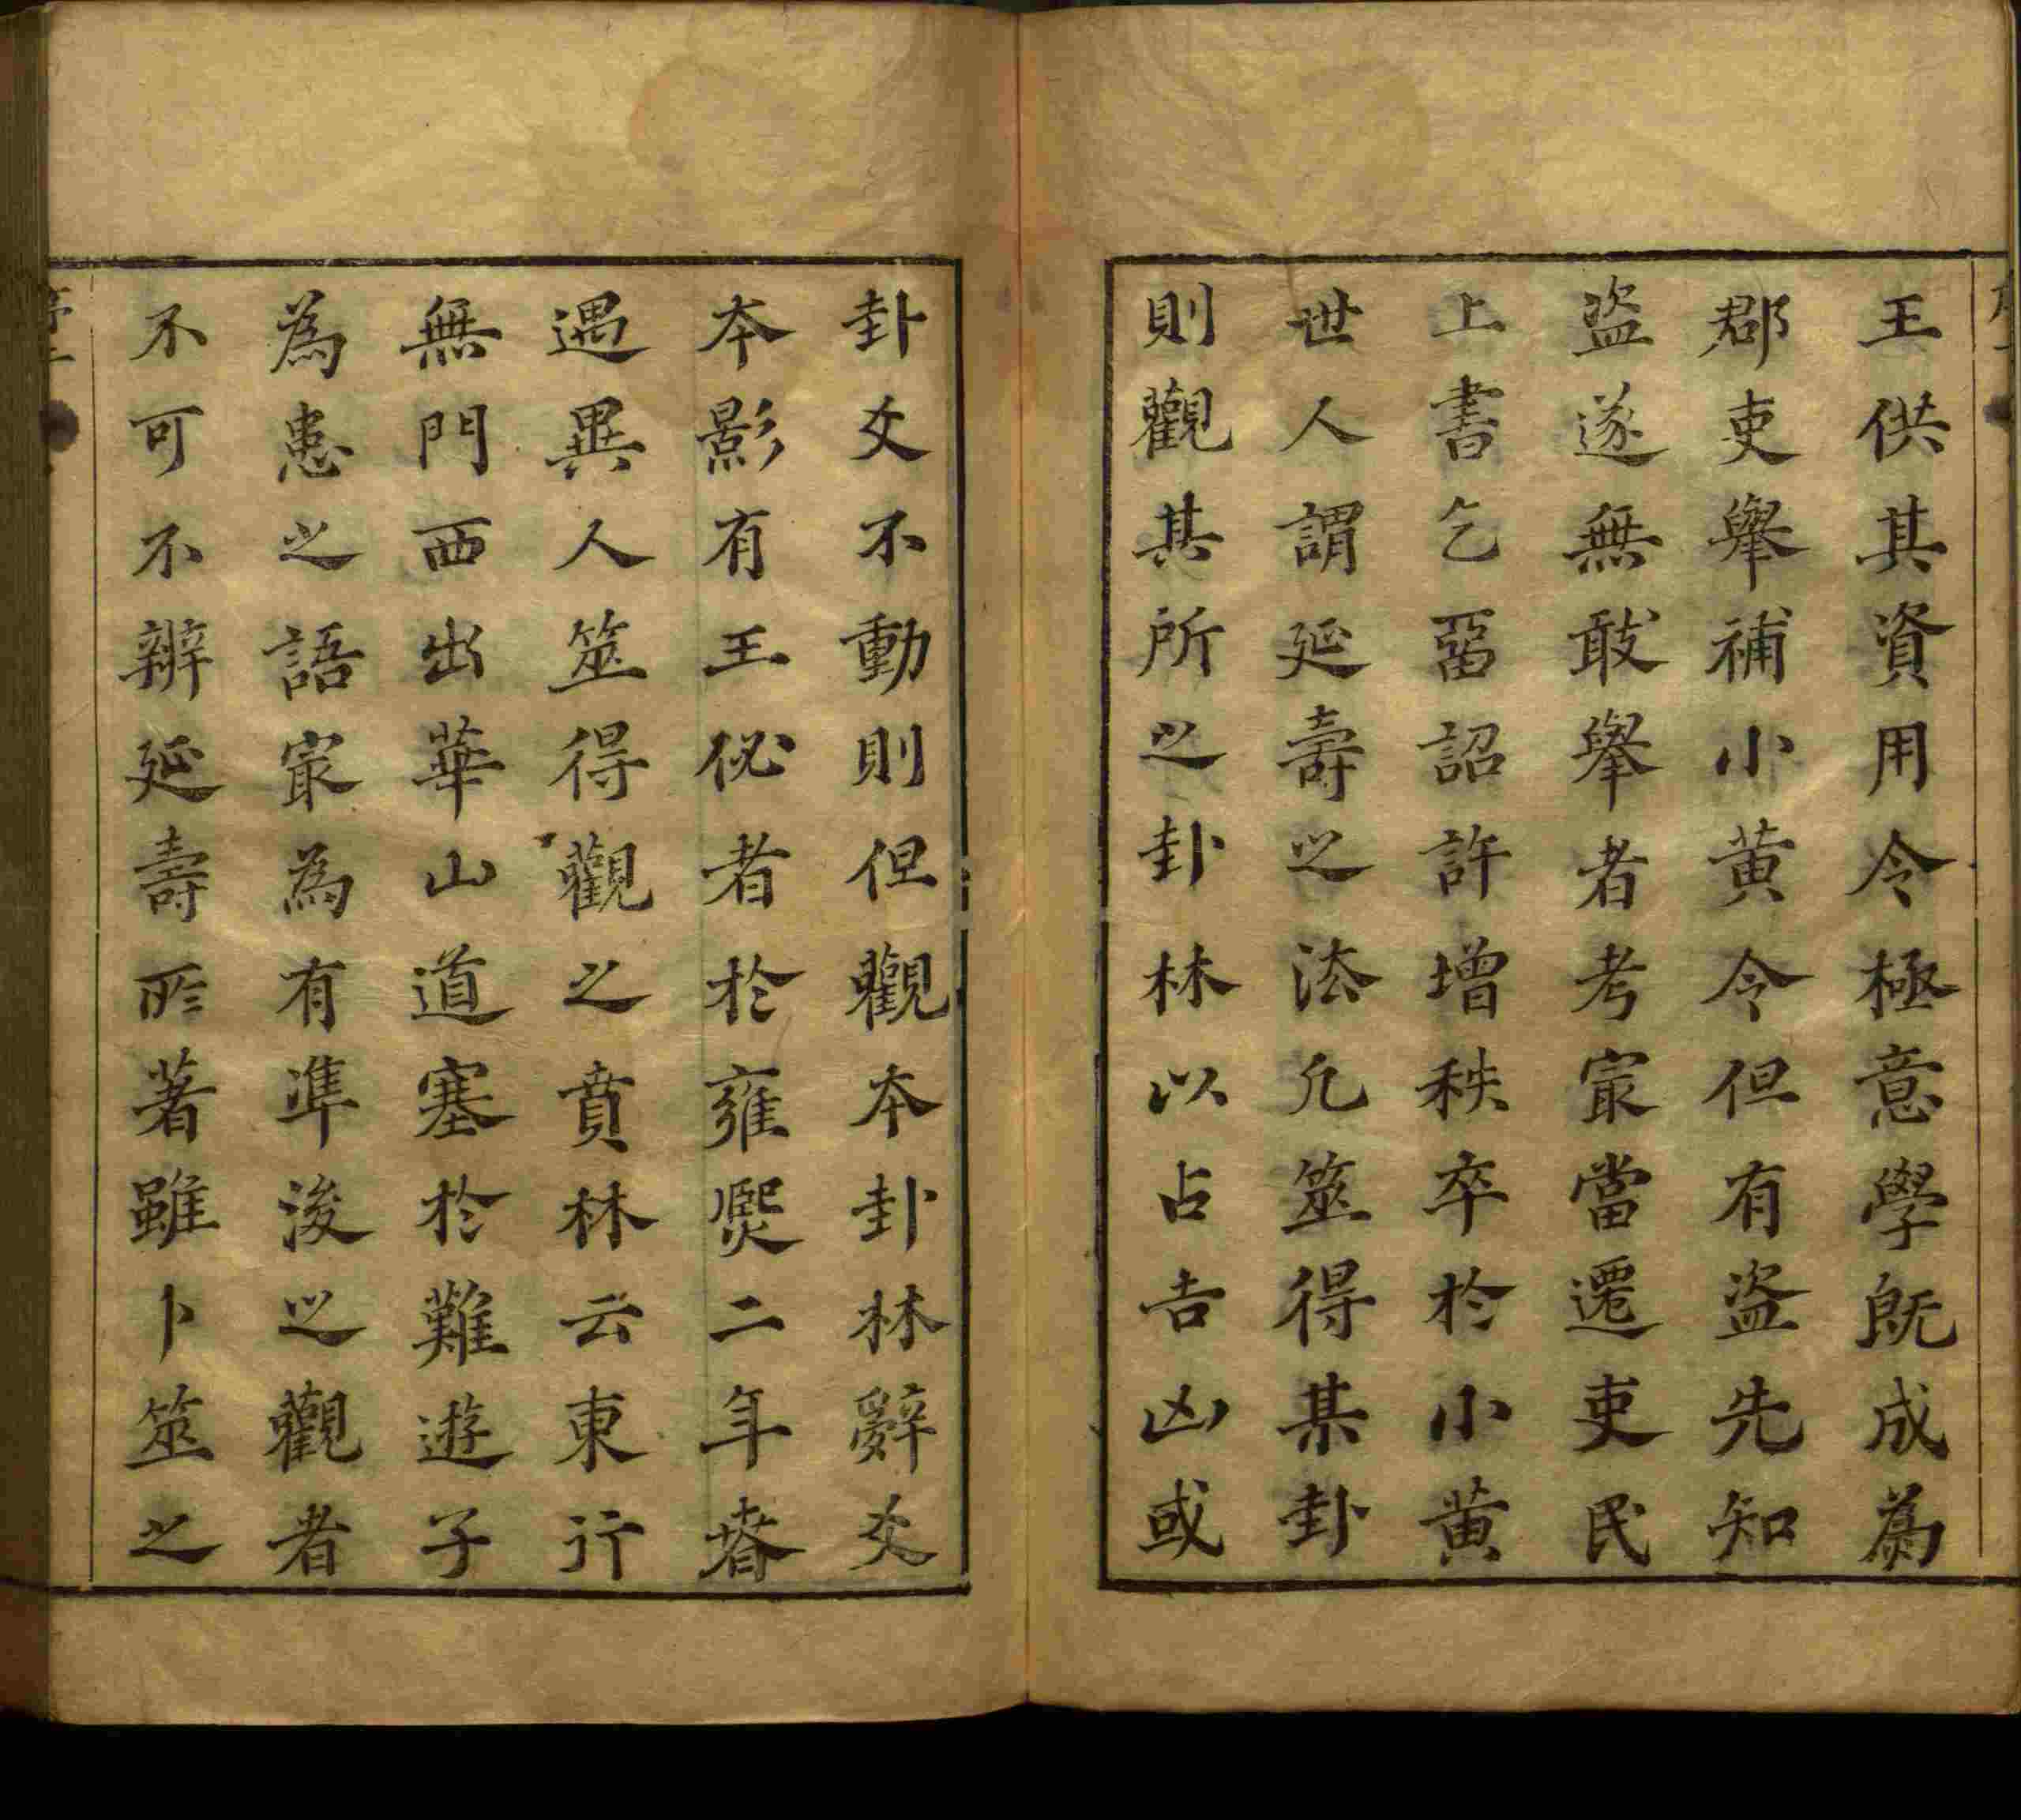 王供其資用令極意學旣成爲
郡吏舉補小黃令但有盜先知
盜遂無敢舉者考㝡當遷吏民
上書乞畱詔許增秩卒於小黃
世人謂延壽之法凡筮得某卦
則觀其所之卦林以占吉凶或
卦爻不動則但觀本卦林辭爻
本影有王佖者於雍熙二年春
遇異人筮得觀之賁林云東行
無門西出華山道塞於難遊子
為患之語㝡為有準後之觀者
不可不辨延壽所著雖卜筮之